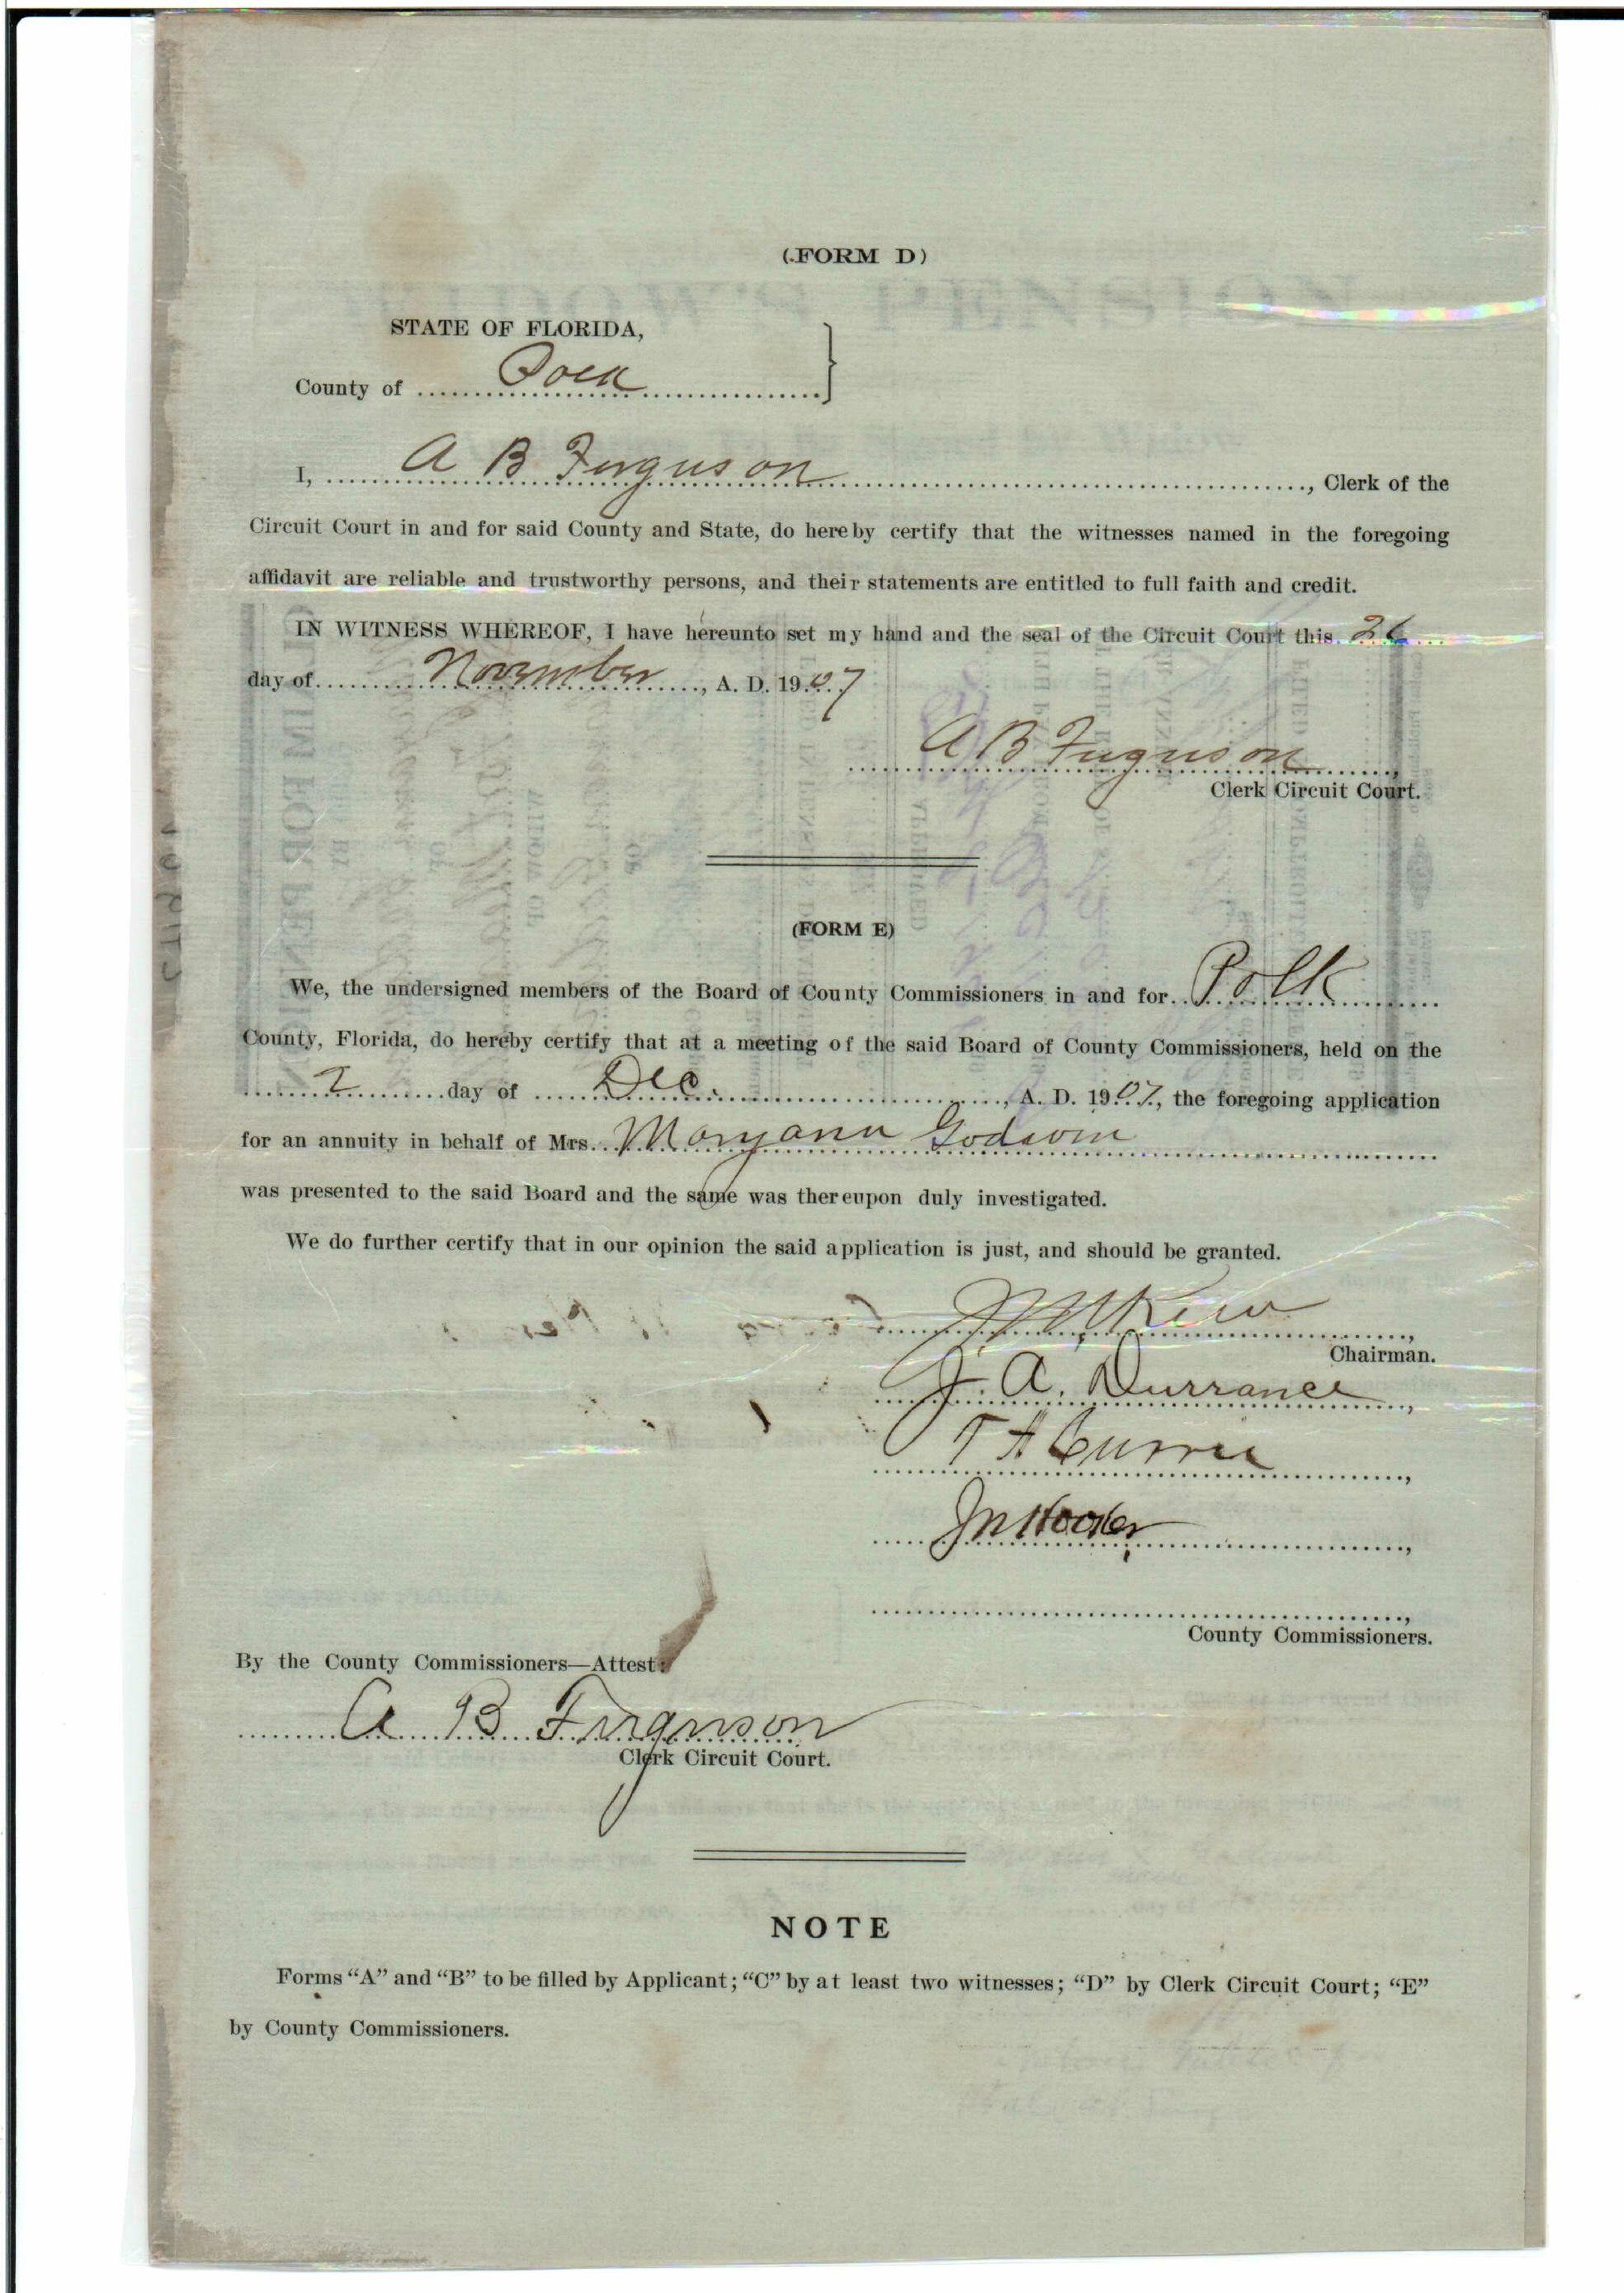 (FORM D)
STATE OF FLORIDA,
County of Polk
I, A B Ferguson, Clerk of the
Circuit Court in and for said County and State, do hereby certify that the witnesses named in the foregoing
affidavit are reliable and trustworthy persons, and their statements are entitled to full faith and credit.
IN WITNESS WHEREOF, I have hereunto set my hand and the seal of the Circuit Court this 26
day of November, A. D. 1907
A B Ferguson
Clerk Circuit Court.
(FORM E)
We, the undersigned members of the Board of County Commissioners in and for Polk
County, Florida, do hereby certify that at a meeting of the said Board of County Commissioners, held on the
2 day of Dec., A. D. 1907, the foregoing application
for an annuity in behalf of Mrs. Maryann Godwin
was presented to the said Board and the same was thereupon duly investigated.
We do further certify that in our opinion the said application is just, and should be granted.
Chairman.
J. A. Durrance,
T A Currie,
County Commissioners.
By the County Commissioners—Attest:
A B Ferguson
Clerk Circuit Court.
NOTE
Forms "A" and "B" to be filled by Applicant; "C" by at least two witnesses; "D" by Clerk Circuit Court; "E"
by County Commissioners.